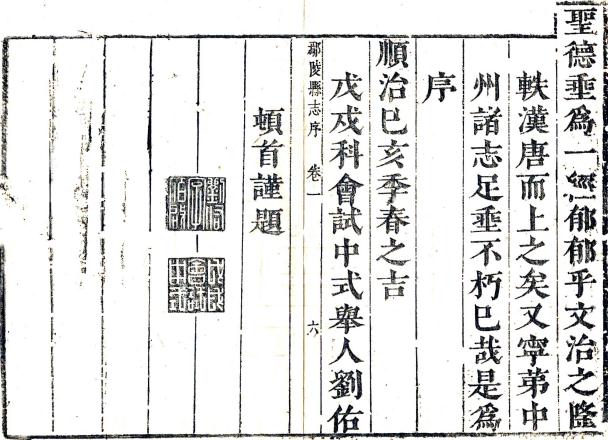 聖德垂爲一經郁郁乎文治之隆
軼漢唐而上之矣又寧第中
州諸志足垂不朽巳哉是爲
序
順治巳亥季春之吉
鄢陵縣志序 卷一 六
戊戌科會試中式舉人劉佑
頓首謹題